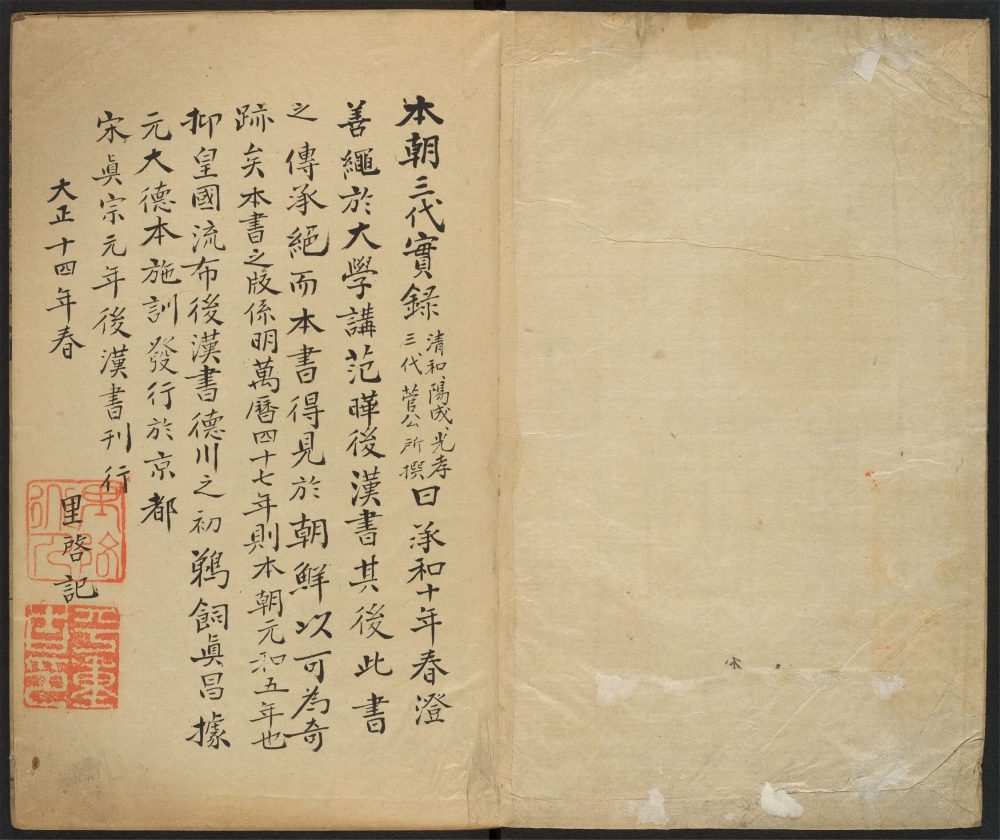 本朝三代實録清和、陽成、光孝三代菅公所撰曰承和十年春澄
善繩於大學講范曄後漢書其後此書
之傳承絕而本書得見於朝鮮以可為奇
跡矣本書之版係明萬曆四十七年則本朝元和五年也
抑皇國流布後漢書德川之初鵜飼眞昌據
元大德本施訓發行於京都
宋眞宗元年後漢書刊行
大正十四年春
里啓記